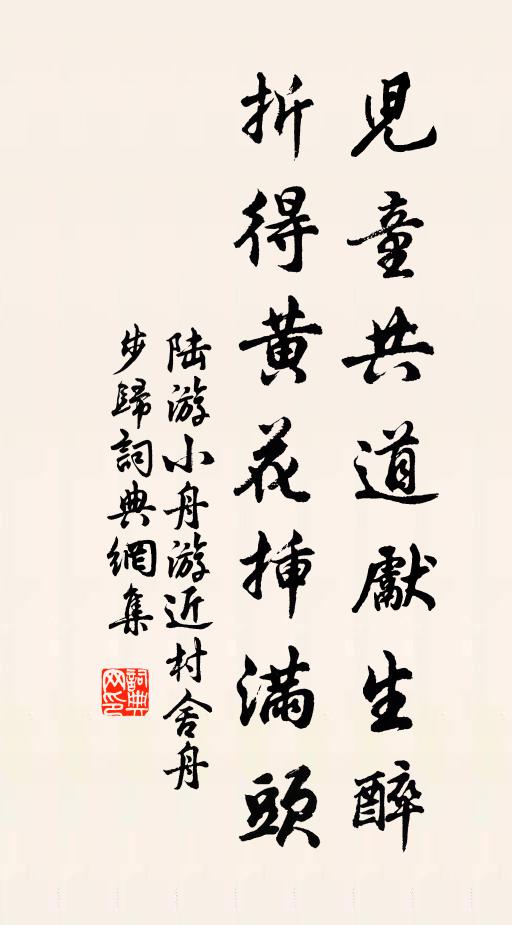 兒童共道獻生醉
折得黃花插滿頭
陸游小舟游近村舍舟
步歸詞典網集
詞典网印